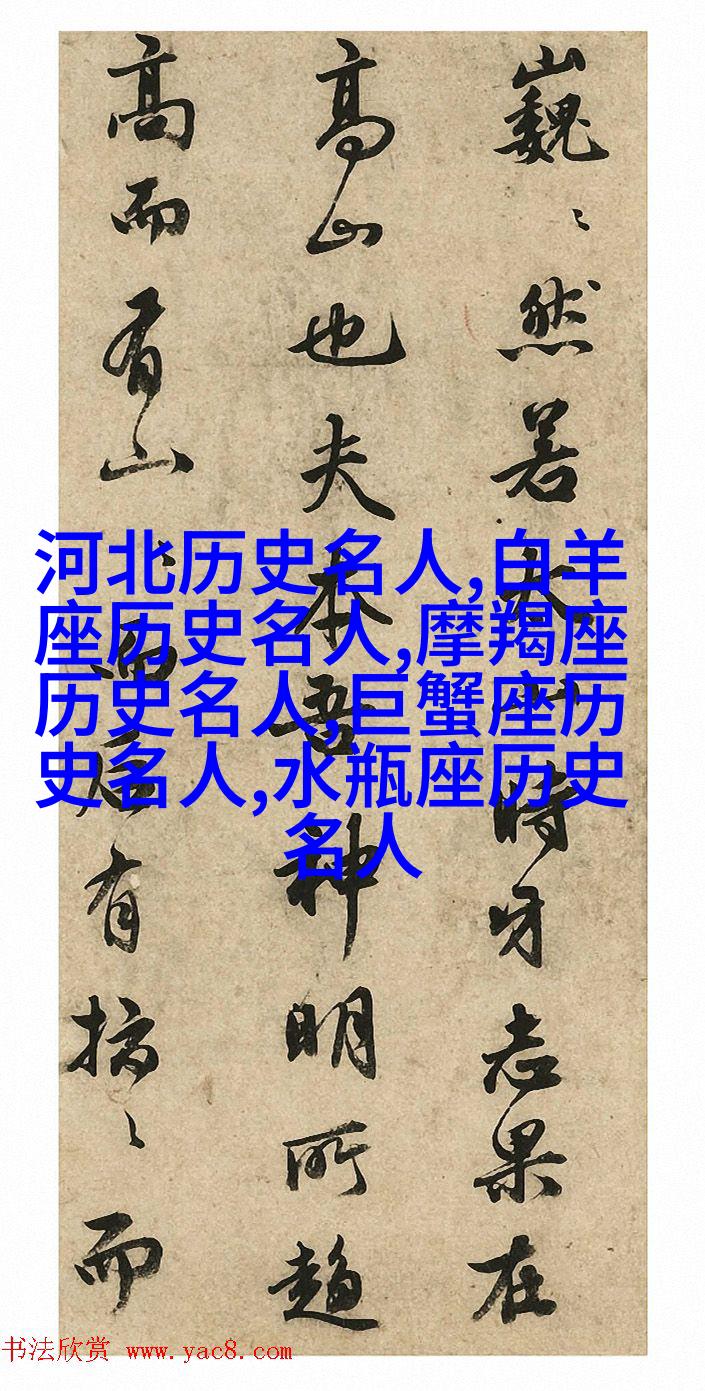 巍〻然若太山時牙志果在
高山也夫本吾神明所趨
高而有山〻而后有摛〻而
河北历史名人,白羊
座历史名人,摩羯座
历史名人,巨蟹座历
史名人,水瓶座历史
名人
书法欣赏 www.yac8.com